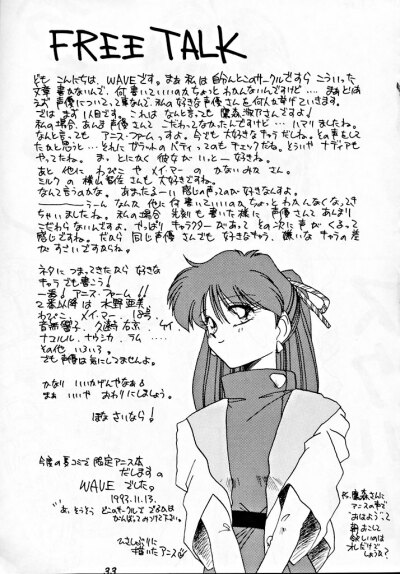 FREE TALK
ども こんにちは、WAVEです。まあ 私は 自分んとこのサークルですら こういった
文章 書かないんで、何 書いていいのか ちょっと わかんないんですけど …. まあとりあ
えず 声優についてって事なんで、私の好きな 声優さんを 何人か挙げていきます。
では まず 1人目。これは なんと言っても 鷹森淑乃さんですけど!
私の場合、あんま 声優さんて こだわってなかったんですけど … ハマりましたね。
なんと言っても アニス・ファームっすよ。今でも 大好きなキャラだしね。その声をして
たかと思うと …
やってたね。ま。とにかく 彼女が いっと― 好きね。
あと 他に
ミルクの 横山智佐さんも 大好きですね。
なんて言うのかな。あまったる―い 感じの声ってのが好きなんすよ。
――――う―ん なんか 他に 何 書いていいのか ちょっと わかんなくなってき
ちゃいましたね。私の場合 先刻も 書いた様に 声優さんて あんまり
こだわらないんすよ。やっぱり キャラクターが あって その次に 声が くるって
感じですね。だから 同じ声優さんでも 好きなキャラ、嫌いなキャラの差
が すごいですからね。
ネタに つまってきたから 好きな
キャラでも 書こう!
一番! アニス・ファーム!!
2番以降は 水野亜美、
わぴこ、メイ・マー、
音無響子、
ナコルル、ナウシカ、ラム …
その他 いろいろ。
でも 声優は 気にしてませんよ。
かなり いいかげんやなぁ
まぁ いいや おわりにしましょう。
ほな さいなら!
今度の 冬コミで 限定アニス本
だしますの
WAVE でした。
1993.11.13.
あ、そうそう
がんばってるので
ひさしぶりに
描いたアニス
P.S. 鷹森さんに
アニスの声で
"おはよう"って
朝おこして
欲しいのは
オレだけで
しょうか?
33